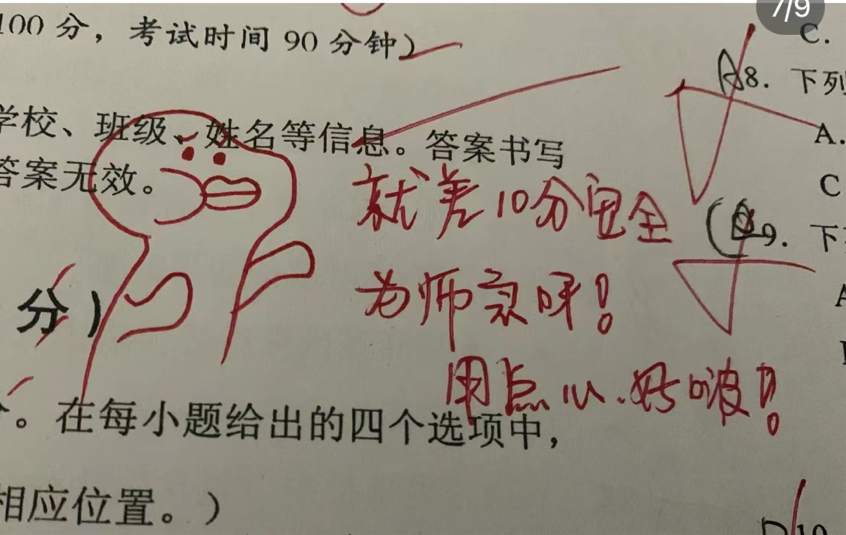 7/9
100 分，考试时间 90 分钟）
C.
8. 下列
学校、班级、姓名等信息。答案书写
A.
答案无效。
C
就差10分
9. 下
为师哀呀！
A
分）
用点心.好啵！！
。在每小题给出的四个选项中，
相应位置。）
10